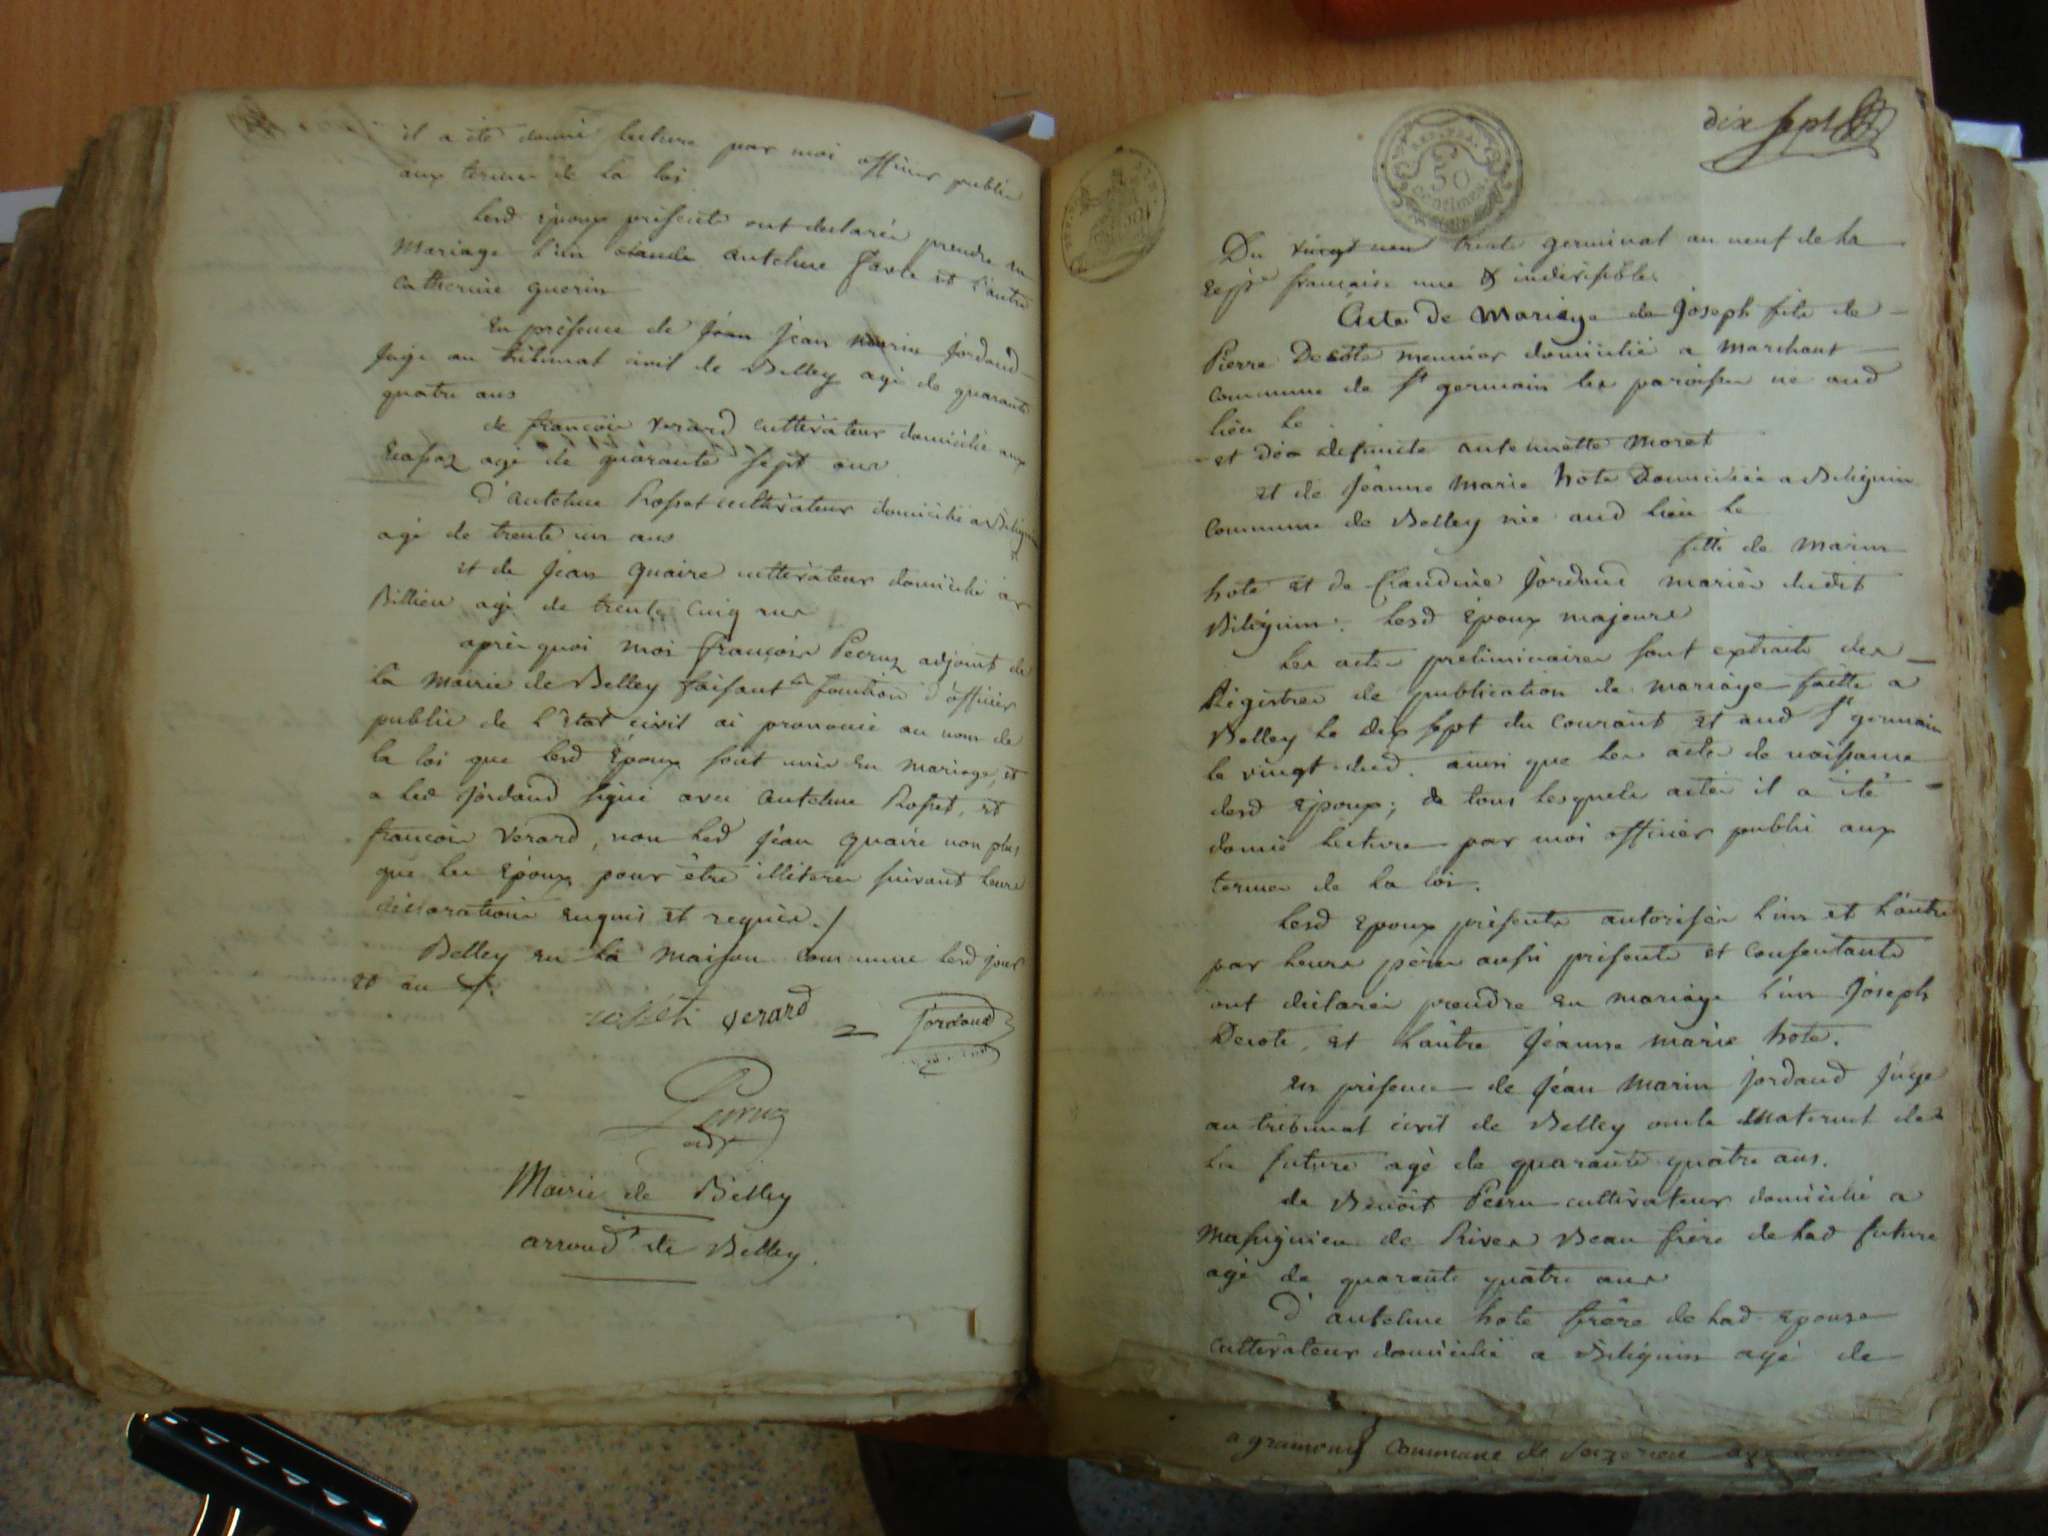 il a été donné lecture par moi officier public
aux termes de la loi
lesd époux présents ont declarés prendre en
mariage l'un claude antelme favre et l'autre
catherine guerin
en présence de jean jean marin jordand
juge au tribunal civil de Belley agé de quarante
quatre ans
de françois verard cultivateur domicilié aux
agé de quarante sept ans
d'antelme Rosset cultivateur domicilié a Biligin
agé de trente un ans
et de jean quaire cultivateur domicilié a
Billieu agé de trente cinq ans
après quoi moi françois Peeruz adjoint de
la mairie de Belley faisant la fonction d'officier
public de l'état civil ai prononcé au nom de
la loi que lesd époux sont unis en mariage, et
a led jordand signé avec antelme Rosset, et
françois verard, non led jean quaire non plus
que les époux pour être illiteres suivant leurs
déclarations enquis et requis./
Belley en la maison commune lesd jour
et an
verard = jordand
Peeruz
adjt
Mairie de Belley
arrondt de Belley.
dix sept
REP. FRA.
50
Centimes
Du vingt neuf trente germinal an neuf de la
Repe française une & indivisible.
Acte de mariage de joseph fils de
Pierre Decôte meunier domicilié a marchant
commune de st germain les paroisses né aud
lieu le
et déa defunte antoinette moret
et de jeanne marie hote Domiciliée a Biliguin
commune de Belley née aud lieu le
fille de marin
hote et de Claudine jordand mariés dudit
Biliguin. lesd époux majeurs
les actes preliminaires sont extraits des
Régistres de publication de mariage faitte a
Belley le dix sept du courant et aud st germain
le vingt dud. ainsi que les actes de naissance
desd époux; de tous lesquels actes il a été
donné lecture par moi officier public aux
termes de la loi.
lesd époux présents autorisés l'un et l'autre
par leurs pères aussi présents et consentants
ont déclarés prendre en mariage l'un joseph
Decote, et l'autre jeanne marie hote.
en présence de jean marin jordand juge
au tribunal civil de Belley oncle maternel de
la future agé de quarante quatre ans.
de Benoit Peeru cultivateur domicilié a
massignieu de Rives Beau frère de lad future
agé de quarante quatre ans
d'antelme hote frère de lad epouse
cultivateur domicilié a Biliguin agé de
commune de